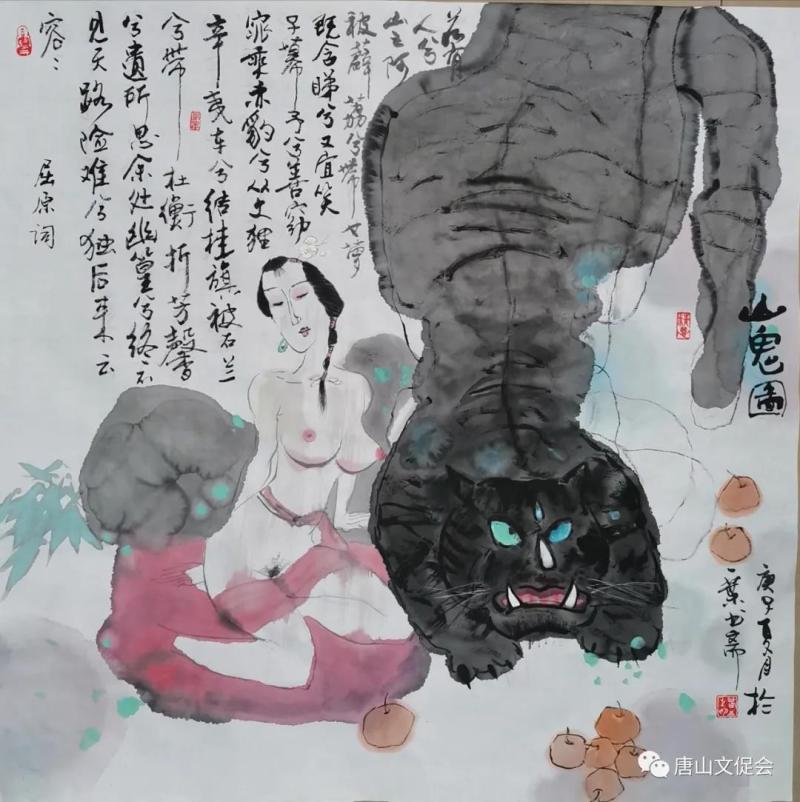 山鬼圖
若有
人兮
山之阿
被薜荔兮带女萝
既含睇兮又宜笑
子慕予兮善窈
窕乘赤豹兮从文狸
辛夷车兮结桂旗被石兰
兮带杜衡折芳馨
兮遗所思余处幽篁兮终不
见天路险难兮独后来云
容〻
屈原词
庚子夏月於
一葉书斋
唐山文促会